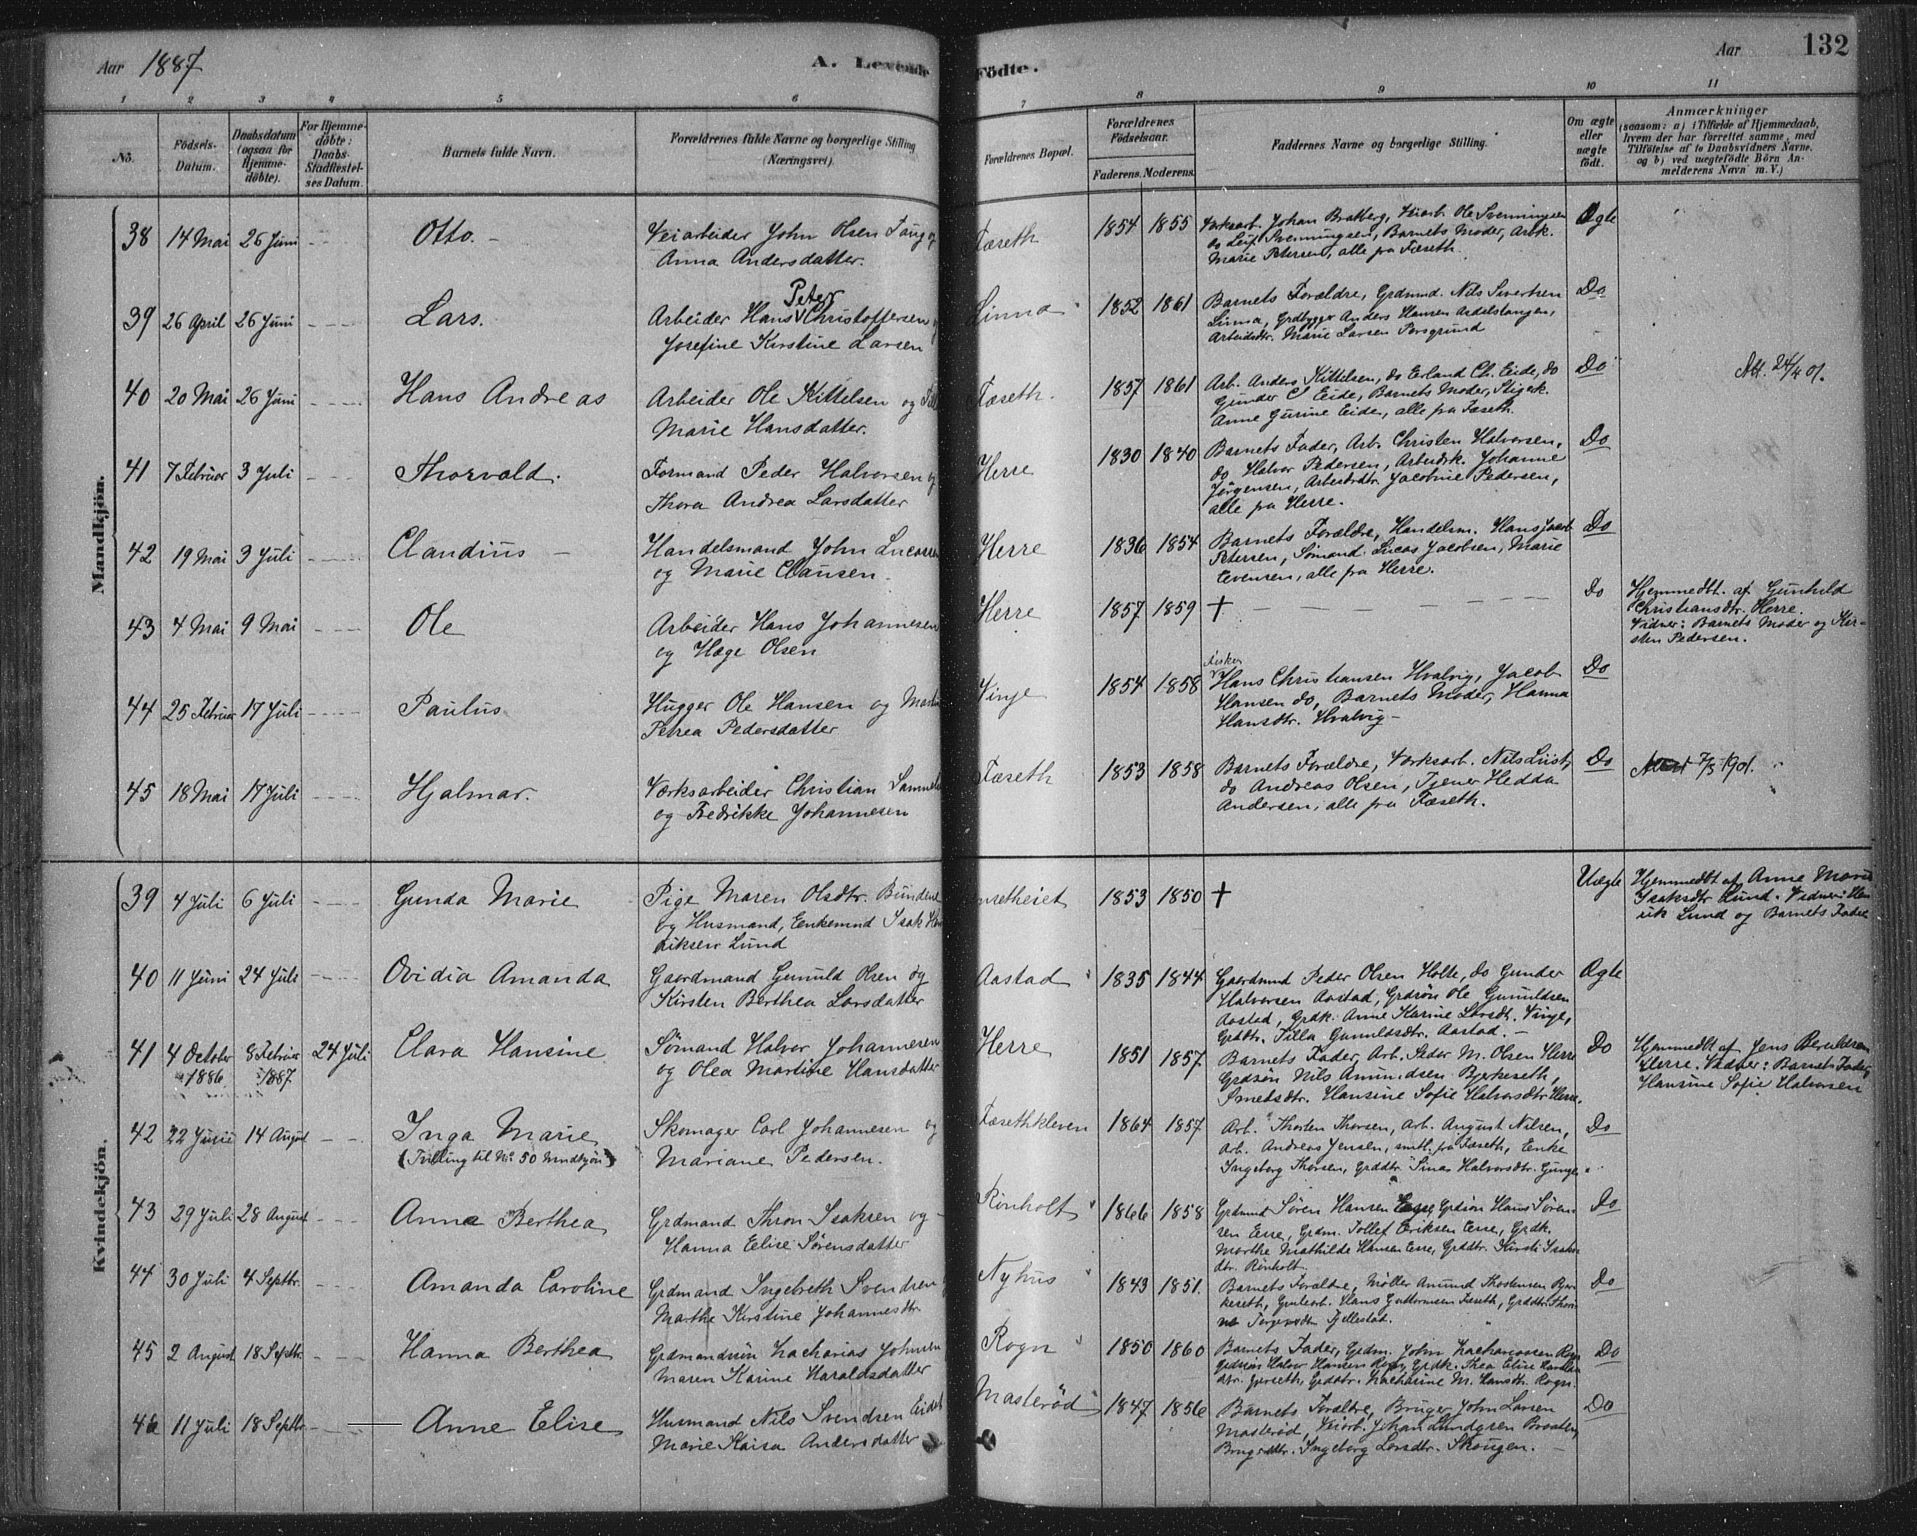 Aar 1887
A. Levende Födte.
Aar 132
1 2 3 4 5 6 7 8 9 10 11
No.
Födsels-Datum.
Daabsdatum (ogsaa for Hjemme-döbte).
For Hjemme-döbte: Daabs-Stadfæstel-ses Datum.
Barnets fulde Navn.
Forældrenes fulde Navne og borgerlige Stilling (Næringsvei).
Forældrenes Bopæl.
Forældrenes Födselsaar.
Faderens. Moderens.
Faddernes Navne og borgerlige Stilling.
Om ægte eller uægte födt.
Anmærkninger
(saasom: a) i Tilfælde af Hjemmedaab, hvem der har forrettet samme, med Tilföielse af to Daabsvidners Navne. og b) ved uægtefödte Börn An-melderens Navn m. V.)
Mandkjön.
38 14 Mai 26 Juni Otto. Veiarbeider John Olsen
Anna Andersdatter.
Fæseth 1854 1855 Værksarb. Johan Bratberg, Veiarb. Ole Svenningsen
do Leif Svenningsen, Barnets Moder, Arbk.
Marie Petersen, alle fra Fæseth. Ægte
39 26 April 26 Juni Lars. Arbeider Hans Peter Christoffersen
Josefine Kirstine Larsen
Linna 1852 1861 Barnets Forældre, Grdmnd. Nils Sivertsen
Linna, Grdbyger Anders Hansen Ardelstangen,
Arbeidsdtr. Marie Larsen Porsgrund Do
40 20 Mai 26 Juni Hans Andreas Arbeider Ole Kittelsen og
Marie Hansdatter.
Fæseth. 1857 1861 Arb. Anders Kittelsen, do Erland Ch. Eide, do
Gunder C Eide, Barnets Moder, Pigek.
Anne Gurine Eide, alle fra Fæseth. Do Att. 24/4 01.
41 7 Februar 3 Juli Thorvald. Formand Peder Halvorsen og
Thora Andrea Larsdatter
Herre 1830 1840 Barnets Fader, Arb. Christen Halvorsen,
do Halvor Pedersen, Arbeidsk. Johanne
Jörgensen, Arbeidsdtr. Jacobine Pedersen,
alle fra Herre. Do
42 19 Mai 3 Juli Claudius Handelsmand John Lucassen
og Marie Clausen.
Herre 1836 1854 Barnets Forældre, Handelsm. Hans Jacob
Petersen, Sömand Lucas Jacobsen, Marie
Evensen, alle fra Herre. Do
43 4 Mai 9 Mai Ole Arbeider Hans Johannesen
og Hæge Olsen
Herre 1857 1859 + Do Hjemmedbt. af Gunhild
Christiansdtr. Herre.
Vidner: Barnets Moder og Kir-
sten Pedersen.
44 25 Februar 17 Juli Paulus Hugger Ole Hansen og
Petrea Pedersdatter
Vinje 1854 1858 Fisker Hans Christiansen Hvalvig, Jacob
Hansen do, Barnets Moder, Hanna
Hansdtr. Hvalvig Do
45 18 Mai 17 Juli Hjalmar. Værksarbeider Christian
og Fredrikke Johannesen
Fæseth 1853 1858 Barnets Forældre, Værksarb. Nils Liist,
do Andreas Olsen, Tjener Hedda
Andersen, alle fra Fæseth. Do Attest 7/3 1901.
Kvindekjön.
39 4 Juli 6 Juli Gunda Marie Pige Maren Olsdtr.
og Husmand, Enkemnd Isak Hen
riksen Lund
1853 1850 + Uægte Hjemmedbt af Anne Marie
Isaksdtr Lund. Vidner: Hen
rik Lund og Barnets Fader
40 11 Juni 24 Juli Ovidia Amanda Gaardmand Gunuld Olsen og
Kirsten Berthea Larsdatter
Aastad 1835 1844 Gaardmnd Peder Olsen Holte, do Gunder
Halvorsen Aastad, Grdsön Ole Gunuldsen
Aastad, Grdk. Anne Karine Larsdt. Vinje,
Grddtr. Tilla Gunuldsdtr. Aastad. Ægte
41 4 October 1886 8 Februar 1887 24 Juli Clara Hansine Sömand Halvor Johannesen
og Olea Martine Hansdatter
Herre 1851 1857 Barnets Fader, Arb. Peder M. Olsen Herre
Grdsön Nils Amundsen Bjerkeseth,
Smedsdtr. Hansine Sofie Halvorsdtr Herre. Do Hjemmedbt af Jens
Herre. Vidner: Barnets Fader,
Hansine Sofie Halvorsen
42 22 Juni 14 August Inga Marie
(Tvilling til No. 50 Mndkjön)
Skomager Carl Johannesen og
Mariane Pedersen.
Fæsethkleven 1864 1857 Arb. Thorsten Thorsen, Arb. August Nilsen,
Arb. Andreas Jensen, smtl. fra Fæseth, Enke
Ingeborg Thorsen, Grddtr. Sina Halvorsdtr. Do
43 29 Juli 28 August Anna Berthea Grdmand Thron Isaksen og
Hanna Elise Sörensdatter
Rönholt 1866 1858 Grdmnd Sören Hansen Esse, Grdsön Hans Sören-
sen Esse, Grdm. Tollef Eriksen Esse, Grdk.
Marthe Mathilde Hansen Esse, Grddtr. Kirsti Isaks
dtr. Rönholt. Do
44 30 Juli 4 Septbr. Amanda Caroline Grdmand Ingebreth Svendsen
Marthe Kirstine Johannesdtr.
Nyhus 1843 1851 Barnets Forældre, Möller Amund Thorstensen Bjer-
keseth, Hans Guttormsen Fæseth, Grddtr
Fjellestad. Do
45 2 August 18 Septbr. Hanna Berthea Grdmandssön Zacharias Johnsen
Maren Karine Haraldsdatter
Rogn 1850 1860 Barnets Fader, Grdm. John Zachariassen Rogn
Grdsön Halvor Hansen Rogn, Grdk. Thea Elise
dtr. , Grddtr. Zacharine M. Hansdtr. Rogn. Do
46 11 Juli 18 Septbr. Anne Elise Husmand Nils Svendsen Eidet
Marie Kaisa Andersdatter
Masteröd 1847 1856 Barnets Forældre, Bruger John Larsen
Masteröd, Veiarb. Johan Lundgren Braaten,
Brugsdtr. Ingeborg Larsdtr. Skougen. Do